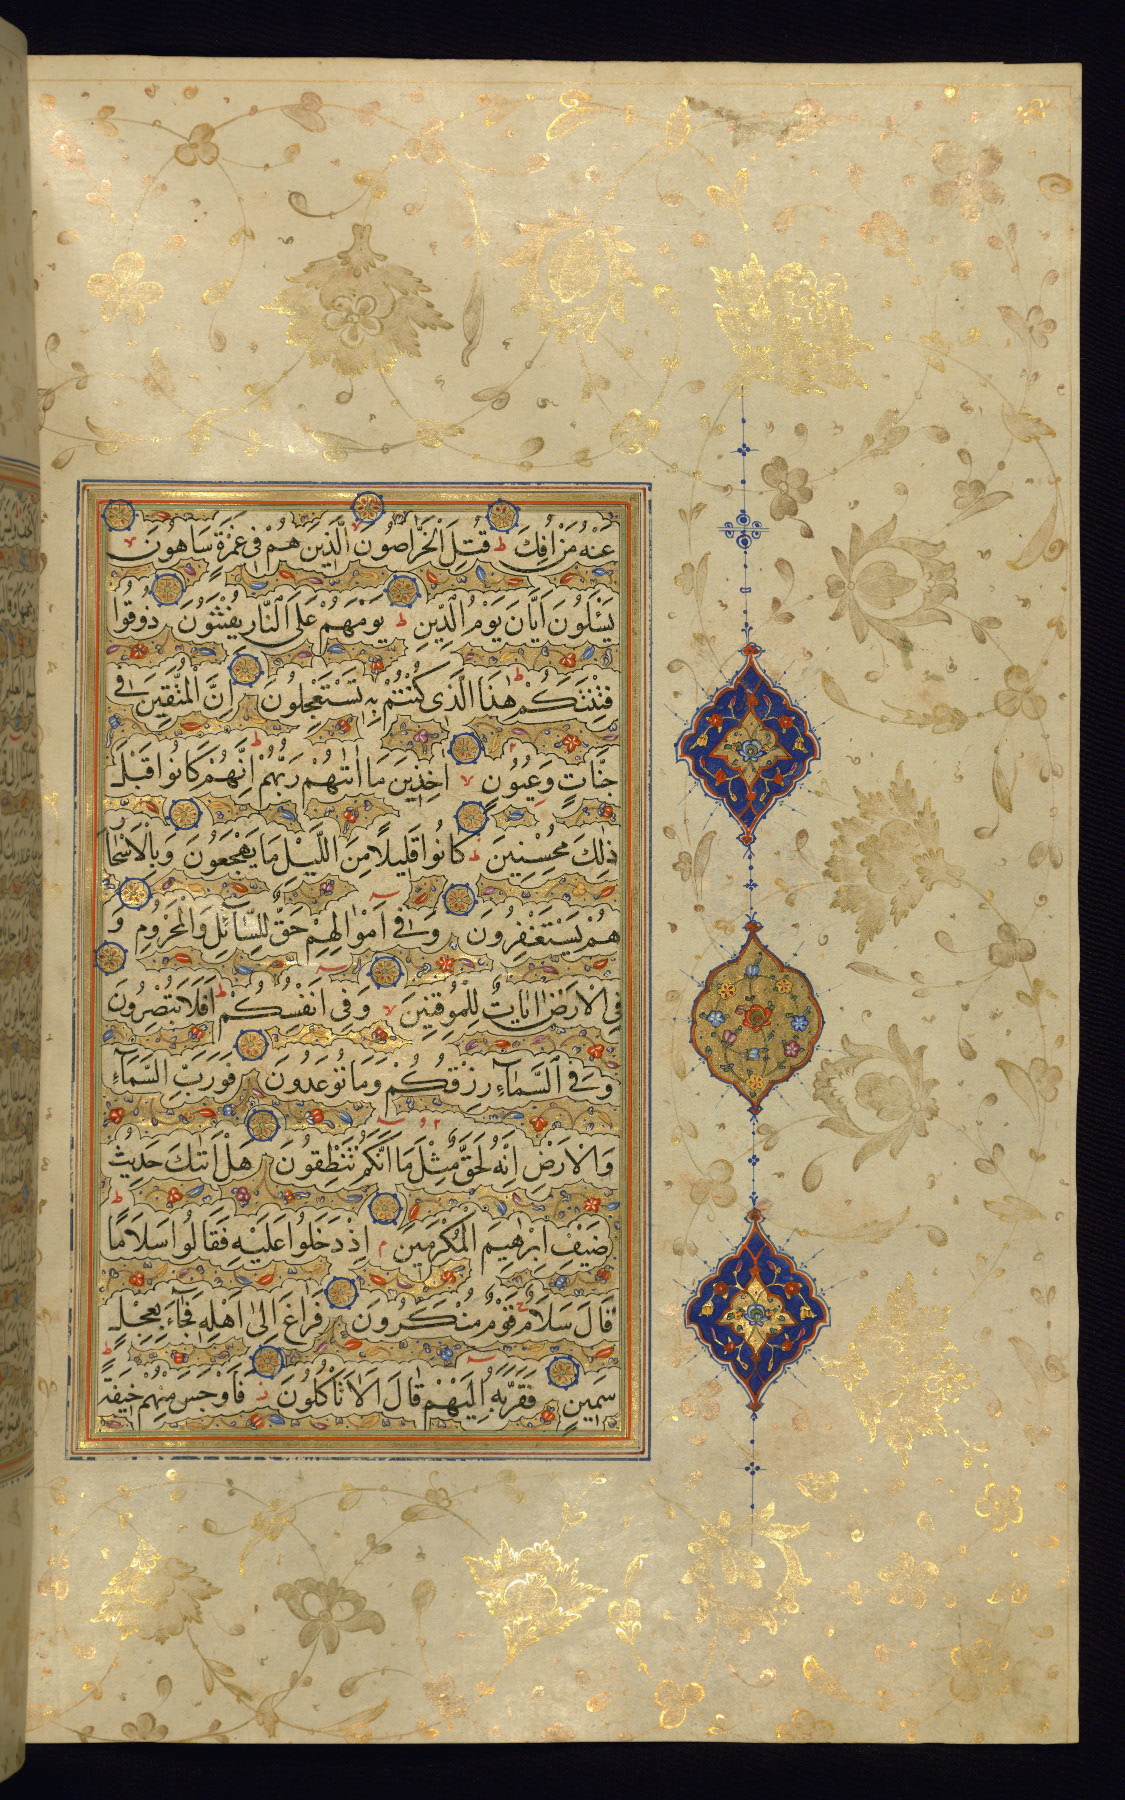 عَنْهُ مَنْ اُفِكَ قُتِلَ الْخَرَّاصُونَ الَّذِينَ هُمْ فِى غَمْرَةٍ سَاهُونَ
يَسْئَلُونَ اَيَّانَ يَوْمُ الدِّينِ يَوْمَهُمْ عَلَى النَّارِ يُفْتَنُونَ ذُوقُوا
فِتْنَتَكُمْ هٰذَا الَّذِى كُنْتُمْ بِهِ تَسْتَعْجِلُونَ اِنَّ الْمُتَّقِينَ فِى
جَنَّاتٍ وَعُيُونٍ اٰخِذِينَ مَا اٰتٰهُمْ رَبُّهُمْ اِنَّهُمْ كَانُوا قَبْلَ
ذٰلِكَ مُحْسِنِينَ كَانُوا قَلِيلًا مِنَ اللَّيْلِ مَا يَهْجَعُونَ وَبِالْاَسْحَارِ
هُمْ يَسْتَغْفِرُونَ وَفِى اَمْوَالِهِمْ حَقٌّ لِلسَّآئِلِ وَالْمَحْرُومِ وَ
فِى الْاَرْضِ اٰيَاتٌ لِلْمُوقِنِينَ وَفِى اَنْفُسِكُمْ اَفَلَا تُبْصِرُونَ
وَفِى السَّمَآءِ رِزْقُكُمْ وَمَا تُوعَدُونَ فَوَرَبِّ السَّمَآءِ
وَالْاَرْضِ اِنَّهُ لَحَقٌّ مِثْلَ مَا اَنَّكُمْ تَنْطِقُونَ هَلْ اَتٰىكَ حَدِيثُ
ضَيْفِ اِبْرٰهِيمَ الْمُكْرَمِينَ اِذْ دَخَلُوا عَلَيْهِ فَقَالُوا سَلَامًا
قَالَ سَلَامٌ قَوْمٌ مُنْكَرُونَ فَرَاغَ اِلٰى اَهْلِهِ فَجَآءَ بِعِجْلٍ
سَمِينٍ فَقَرَّبَهُ اِلَيْهِمْ قَالَ اَلَا تَاْكُلُونَ فَاَوْجَسَ مِنْهُمْ خِيفَةً